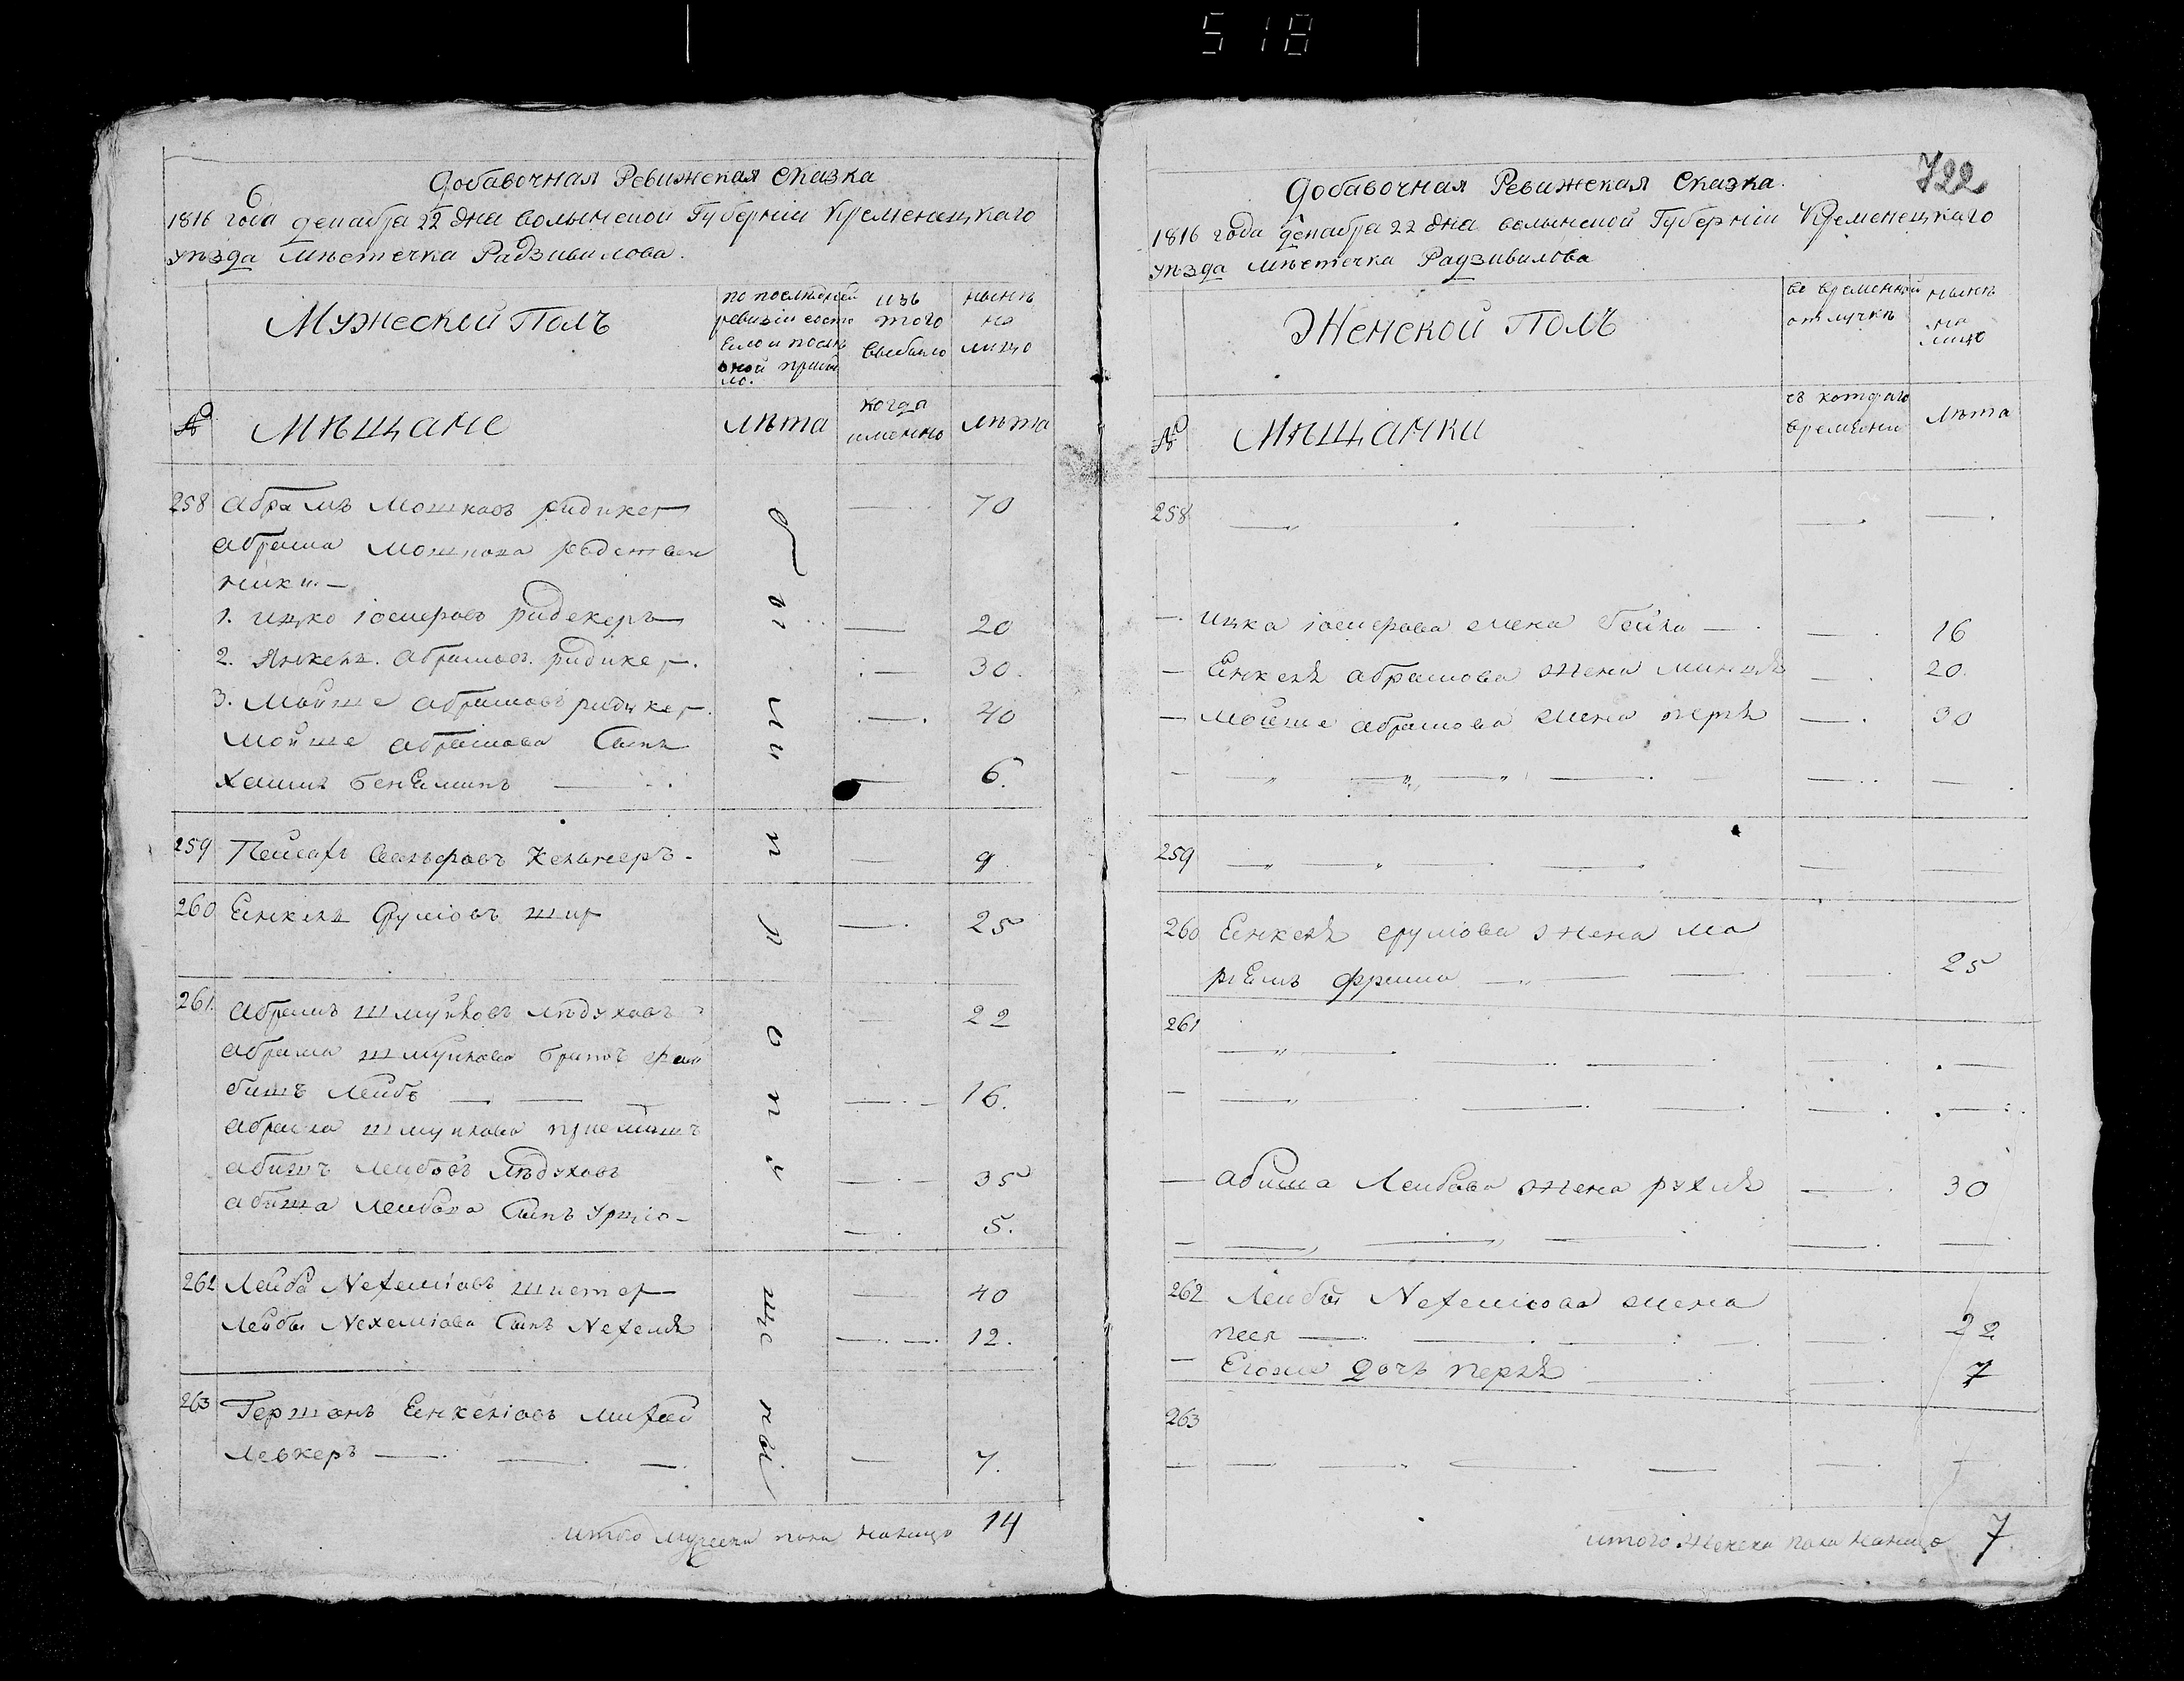 518
Добавочная Ревижская Сказка
6
1816 года декабря 22 дня волынской Губерніи Кременецкаго
уѣзда мѣстечка Радзивилова.
Мужеской Полъ
по последней
ревизіи состо
яло и после
оной прибы
ло.
изъ
того
выбыло
нынѣ
на
лицо
№
Мѣщане
лѣта
когда
именно
лѣта
вновь пропущенные
258 Абрамъ Мошковъ Ридикер — 70
Абрама Мошкова родствен
ники. —
1. Ицко Іосифовъ Ридекеръ — 20
2. Янкель Абрамовъ ридикер. — 30.
3. Мойше Абрамовъ ридикер. — 40
Мойше Абрамова Сынъ
Хаимъ Бенеминъ — 6.
259 Пейсахъ Келънеръ — 9
260 Еинкель Срумовъ — 25
261. Абрамъ Шмуйловъ — 22
Абрама Шмуйлова братъ Фай
бишъ Лейбъ — 16.
Абрама Шмуйлова приемышъ
Абишъ Лейбовъ — 35
Абиша Лейбова Сынъ — 5.
262 Лейба Nехеміовъ — 40
Лейбы Nехеміова Сынъ Nехемя — 12.
263 Гершонъ Еинкеліовъ Михай
левкеръ — 7.
итого мужеска пола налицо 14
722
Добавочная Ревижская Сказка.
1816 года декабря 22 дня волынской Губерніи Кременецкаго
уѣзда мѣстечка Радзивилова
Женской Полъ
во временной
отлучкѣ
нынѣ
на
лицо
№
Мѣщанки
съ котораго
времени
лѣта
258 —
— Ицка Іосифова жена Бейла — 16
— Еинкеля Абрамова жена — 20.
— Мойше Абрамова жена перля — 30
259 —
260 Еинкеля Срумова жена Ма
ріемъ Фрима — 25
261
— Абиша Лейбова жена рухля — 30
262 Лейбы Nехеміова жена
песя — 22
— Егоже Дочь перля — 7
263
итого женска пола налицо 7.